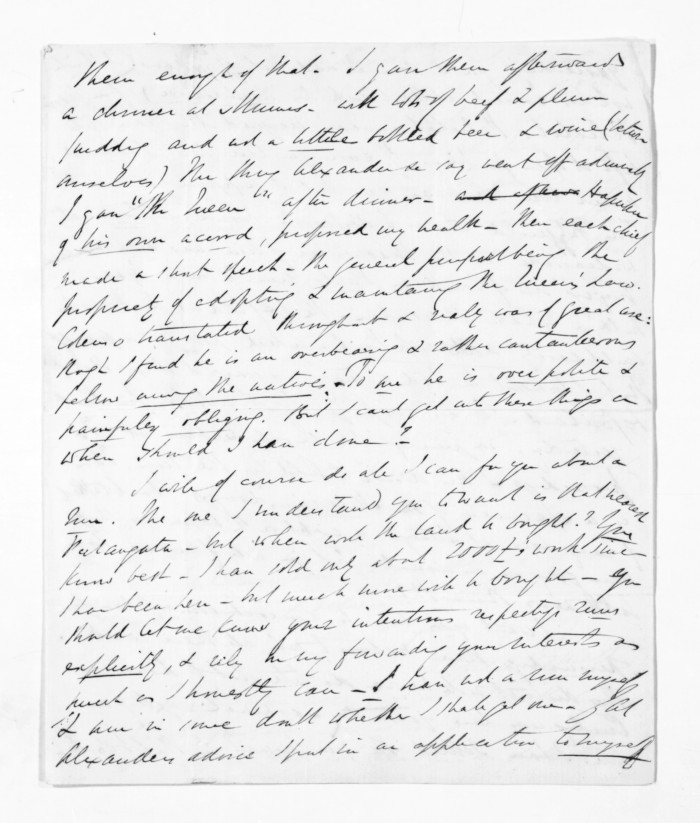 them enough of that. I gave them afterwards
a dinner at Munns - with lots of beef & plum
pudding and not a little bottled beer & wine (between
ourselves) The thing Alexander & say went off admirably
I gave "The Queen" after dinner - and afterw Hapuku
of his own accord, proposed my health - then each chief
made a short speech - the general purport being the
propriety of adopting & maintaining the Queen's Law.
Colenso translated throughout & really was of great use:
though I find he is an overbearing & rather cantankerous
fellow among the natives. To me he is over polite &
painfully obliging. But I can't get into these things or
when should I have done?
I will of course do all I can for you about a
Run. The one I understand you to want is that nearest
Patangata - but when will the land be bought? You
know best - I have sold only about 2000£s worth since
I have been here - but much more will be bought - You
should let me know your intentions respecting runs
explicitly, & rely on my forwarding your interests as
much as I honestly can - I have not a run myself
& am in some doubt whether I shall get one - for at
Alexander's advice I put in an application to myself